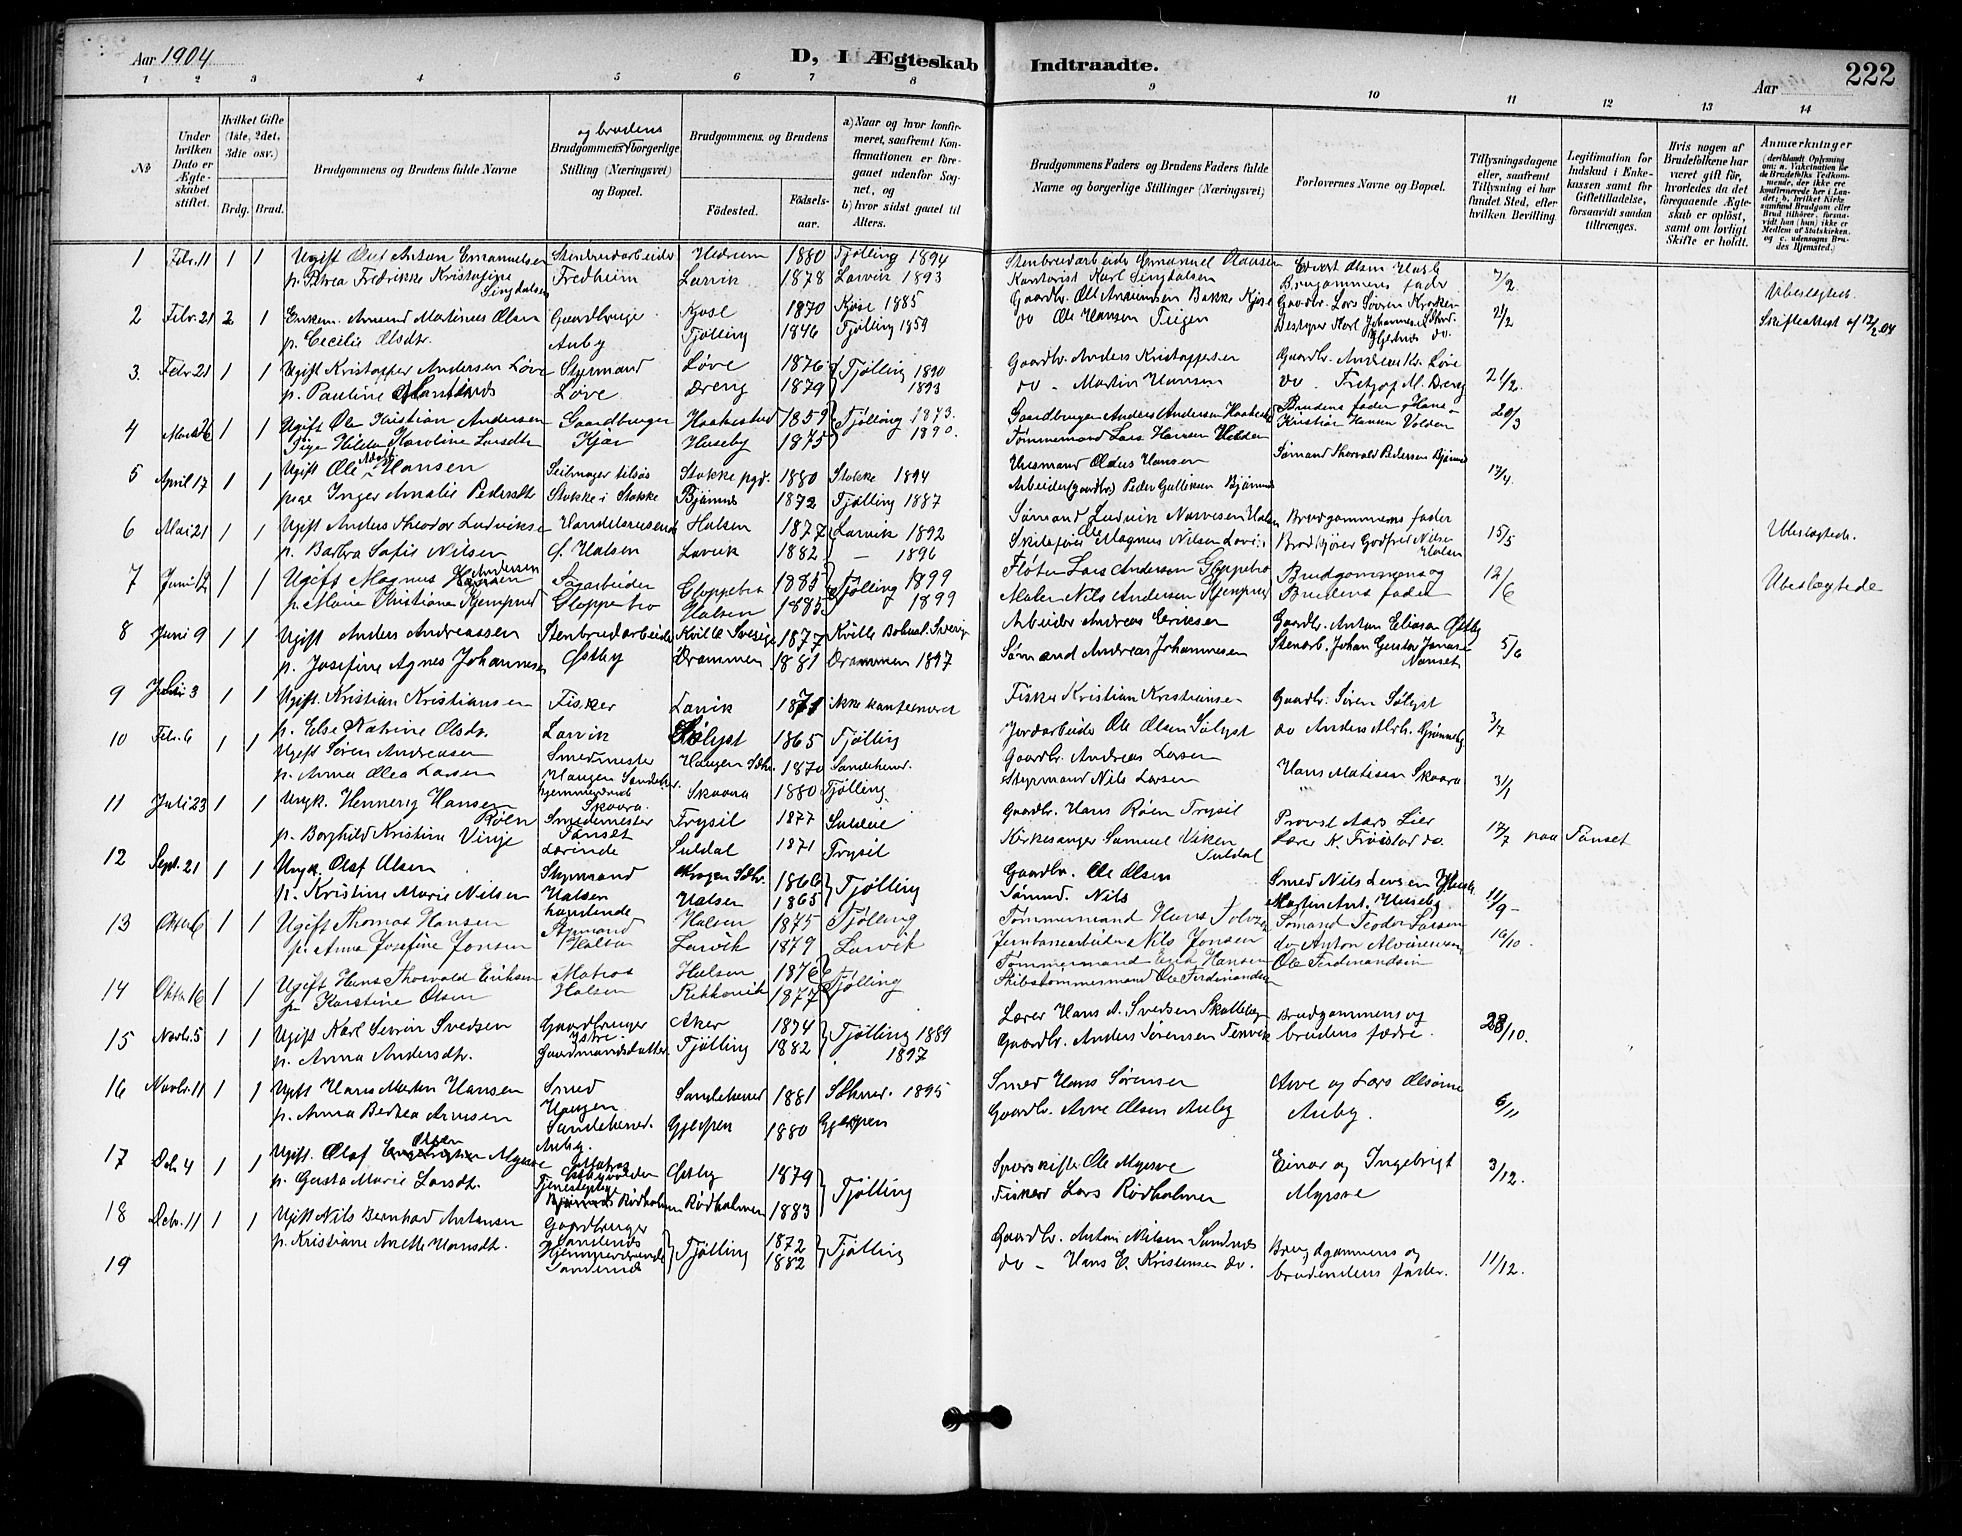 Aar 1904
D, I Ægteskab Indtraadte.
Aar
222
1 2 3 4 5 6 7 8 9 10 11 12 13 14
No
Under hvilken Dato er Ægteskabet stiftet.
Hvilket Gifte (1ste, 2det, 3die osv.)
Brdg. Brud.
Brudgommens og Brudens fulde Navne
og brudens
Brudgommens borgerlige Stilling (Næringsvei) og Bopæl.
Brudgommens og Brudens
Fødested.
Fødselsaar.
a) Naar og hvor konfirmeret, saafremt Konfirmationen er foregaaet udenfor Sognet, og
b) hvor sidst gaaet til Alters.
Brudgommens Faders og Brudens Faders fulde Navne og borgerlige Stillinger (Næringsvei)
Forlovernes Navne og Bopæl.
Tillysningsdagene eller, saafremt Tillysning ei har fundet Sted, efter hvilken Bevilling.
Legitimation for Indskud i Enkekassen samt for Giftetilladelse, forsaavidt saadan tiltrænges.
Hvis nogen af Brudefolkene har været gift før, hvorledes da det foregaaende Ægteskab er opløst, samt om lovligt Skifte er holdt.
Anmærkninger
1 Febr. 11 1 1 Ugift Olaf Anton Emanuelsen Stenbrudarbeider Hedrum 1880 Tjølling 1894 Stenbrudarbeider Emanuel Olausen 7/2
p. Petrea Fredrikke Kristofine Singdalsen Fredheim Larvik 1878 Larvik 1893 Kontorist Karl Singdalsen Brudgommens fader Ubeslægtede.
2 Febr. 21 2 1 Enkem. Amund Martinius Olsen Gaardbruger Kjose 1870 Kjose 1885 Gaardbr. Ole Amundsen Bakke Kjose Gaardbr. Lars Søren 21/2
p. Cecilie Olsdtr. Auby Tjølling 1846 Tjølling 1859 do Ole Hansen Bestyrer Karl Johannesen Skifteattest af 12/2 04
3. Febr 21 1 1 Ugift Kristoffer Andersen Løve Styrmand Løve 1876 Tjølling 1890 Gaardbr. Anders Kristoffersen Gaardbr. Andreas Kr. Løve 21/2.
p. Pauline Løve Dreng 1879 1893 do - Martin Hansen do. Fritjof M. Dreng
4 Marts 26 1 1 Ugift Ole Kristian Andersen Gaardbruger Haakestad 1859 Tjølling 1873. Gaardbruger Anders Andersen Haakestad Brudens fader Hans 20/3
Pige Hilda Karoline Larsdtr Kjær Huseby 1875 1890. Tømmermand Lars Hansen Kristian Hansen Volden
5 April 17 1 1 Ugift Ole Adolf Hansen Seilmager tilsøs Stokke pgd. 1880 Stokke 1894 Husmand Hansen Sømand Thorvald Pedersen Bjønnes 17/4.
pige Inger Amalie Pedersdtr Stokke i Stokke Bjønnes 1872 Tjølling 1887 Arbeider (gaardbr) Peder Gulliksen Bjønnes
6 Mai 21 1 1 Ugift Anders Theodor Ludviksen Handelsreisende Halsen 1877 Larvik 1892 Sømand Ludvik Narvesen Halsen Brudgommens fader 15/5
p. Barbra Sofie Nilsen Halsen Larvik 1882 - 1896 Skibsfører Magnus Nilsen Larvik Godfred Nilsen Halsen Ubeslægtede.
7 Juni 12 1 1 Ugift Magnus Andersen Sagarbeider Gloppebro 1885 Tjølling 1899 Fløter Lars Andersen Gloppebro Brudgommens og 12/6
p. Marie Kristiane Kjempnes Gloppebro Halsen 1885. 1899 Maler Nils Andersen Kjempnes Brudens fader Ubeslægtede
8 Juni 9 1 1 Ugift Anders Andreassen Stenbrudarbeider Kville Sverige 1877 Kville Bohusl. Sverige Arbeider Andreas Eriksen Gaardbr. Anton Eliasen Østby 5/6
p. Josefine Agnes Johannesen Østby Drammen 1881 Drammen 1897 Sømand Andreas Johannesen Stenarb. Johan Gustav Jonassen Nanset
9 Juli 3 1 1 Ugift. Kristian Kristiansen Fisker Larvik 1871 ikke konfirmeret Fisker Kristian Kristiansen Gaardbr. Søren Sølyst 3/7
p. Else Katrine Olsdr. Larvik Sølyst 1865 Tjølling Jordarbeider Ole Olsen Sølyst do Anders
10 Febr. 6 1 1 Ugift Søren Andreasen Smedmester Haugen Sdhr. 1870 Sandeherred. Gaardbr. Andreas Larsen Hans Matisen Skaara 31/1
p. Anna Olea Larsen Haugen Sandeher. hjemmeværende Skaara. Skaara 1880 Tjølling Styrmand Nils Larsen
11 Juli 23 1 1 Ungk. Hennerig Hansen Røen Smedemester Tønset Trysil 1877 Suldal Gaardbr. Hans Røen Trysil Provst Aars Lier 17/7 paa Tønset
p. Borghild Kristine Vinje Lærinde Suldal 1871 Trysil Kirkesanger Samuel Viken Suldal Lærer K. Frøistad do.
12 Sept. 21 1 1 Ungk. Olaf Olsen Styrmand Krogen Sdhr. 1866 Tjølling Gaardbr. Ole Olsen Smed Nils Larsen 11/9 -
p. Kristine Marie Nilsen Halsen Halsen 1865 Sømnd. Nils Martin Ant. Huseby
13 Oktbr 6 1 1 Ugift Thomas Hansen Styrmand Halsen 1875 Tjølling Tømmermand Hans Sømand Teodor Larsen 16/10.
p. Anna Josefine Jonsen Halsen Larvik 1879 Larvik Jernbanearbeider Nils Jonsen do Anton
14 Oktbr 16 1 1 Ugift Hans Thorvald Eriksen Matros Halsen 1876 Tjølling Tømmermand Erik Hansen Ole Ferdinandsen
p. Karstine Olsen Halsen Rekkevik 1877 Skibstømmermand Ole Ferdinandsen
15 Novbr. 5 1 1 Ugift Karl Severin Svedsen Gaardbruger Aker 1874 Tjølling 1889 Lærer Hans A. Svedsen Skalleberg Brudgommens og 23/10.
p. Anna Andersdtr. Gaardmandsdatter Tjølling 1882 1897 Gaardbr. Anders Sørensen Tenvik brudens fædre.
16 Novbr. 11 1 1 Ugift Hans Morten Hansen Smed Haugen Sandeherred 1881 Sdhrred. 1895 Smed Hans Sørensen Arve og Lars Olsønner 6/11
p. Anna Bertea Arvesen Sandeherred. Auby. Gjerpen 1880 Gjerpen Gaardbr. Arve Olsen Auby Auby.
17 Deb. 4 1 1 Ugift. Olaf Olsen Myrsve Østby 1879 Tjølling Sporskifter Ole Myrsve Einar og Ingebrigt 3/12.
p. Gusta Marie Larsdtr. Rødholmen Rødholmen 1883 Fisker Lars Rødholmen Myrsve
18 Debr. 11 1 1 Ugift Nils Bernhard Antonsen Gaardbruger Sandenes Tjølling 1872 Tjølling Gaardbr. Anton Nilsen Sandnes Brugdgommens og 11/12.
p. Kristiane Anette Hansdtr. Hjemmeværende Sandenes 1882 do - Hans E. Kristensen do. brudendens fader.
19